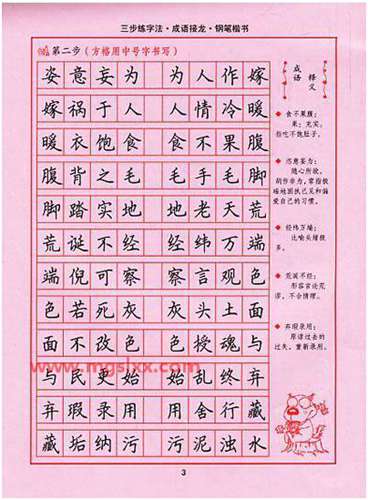 三步练字法·成语接龙·钢笔楷书
第二步(方格用中号字书写)
姿意妄为 为人作嫁
嫁祸于人 人情冷暖
暖衣饱食 食不果腹
腹背之毛 毛手毛脚
脚踏实地 地老天荒
荒诞不经 经纬万端
端倪可察 察言观色
色若死灰 灰头土面
面不改色 色授魂与
与民更始 始乱终弃
弃瑕录用 用舍行藏
藏垢纳污 污泥浊水
成语释义
食不果腹:
果:充实。
指吃不饱肚子。
恣意妄为:
随心所欲,
胡作非为,常指骄
经纬万端:
比喻头绪很
多。
荒诞不经:
形容言论荒
谬,不合情理。
弃瑕录用:
原谅过去的
过失,重新录用。
www.mgslxx.com
3